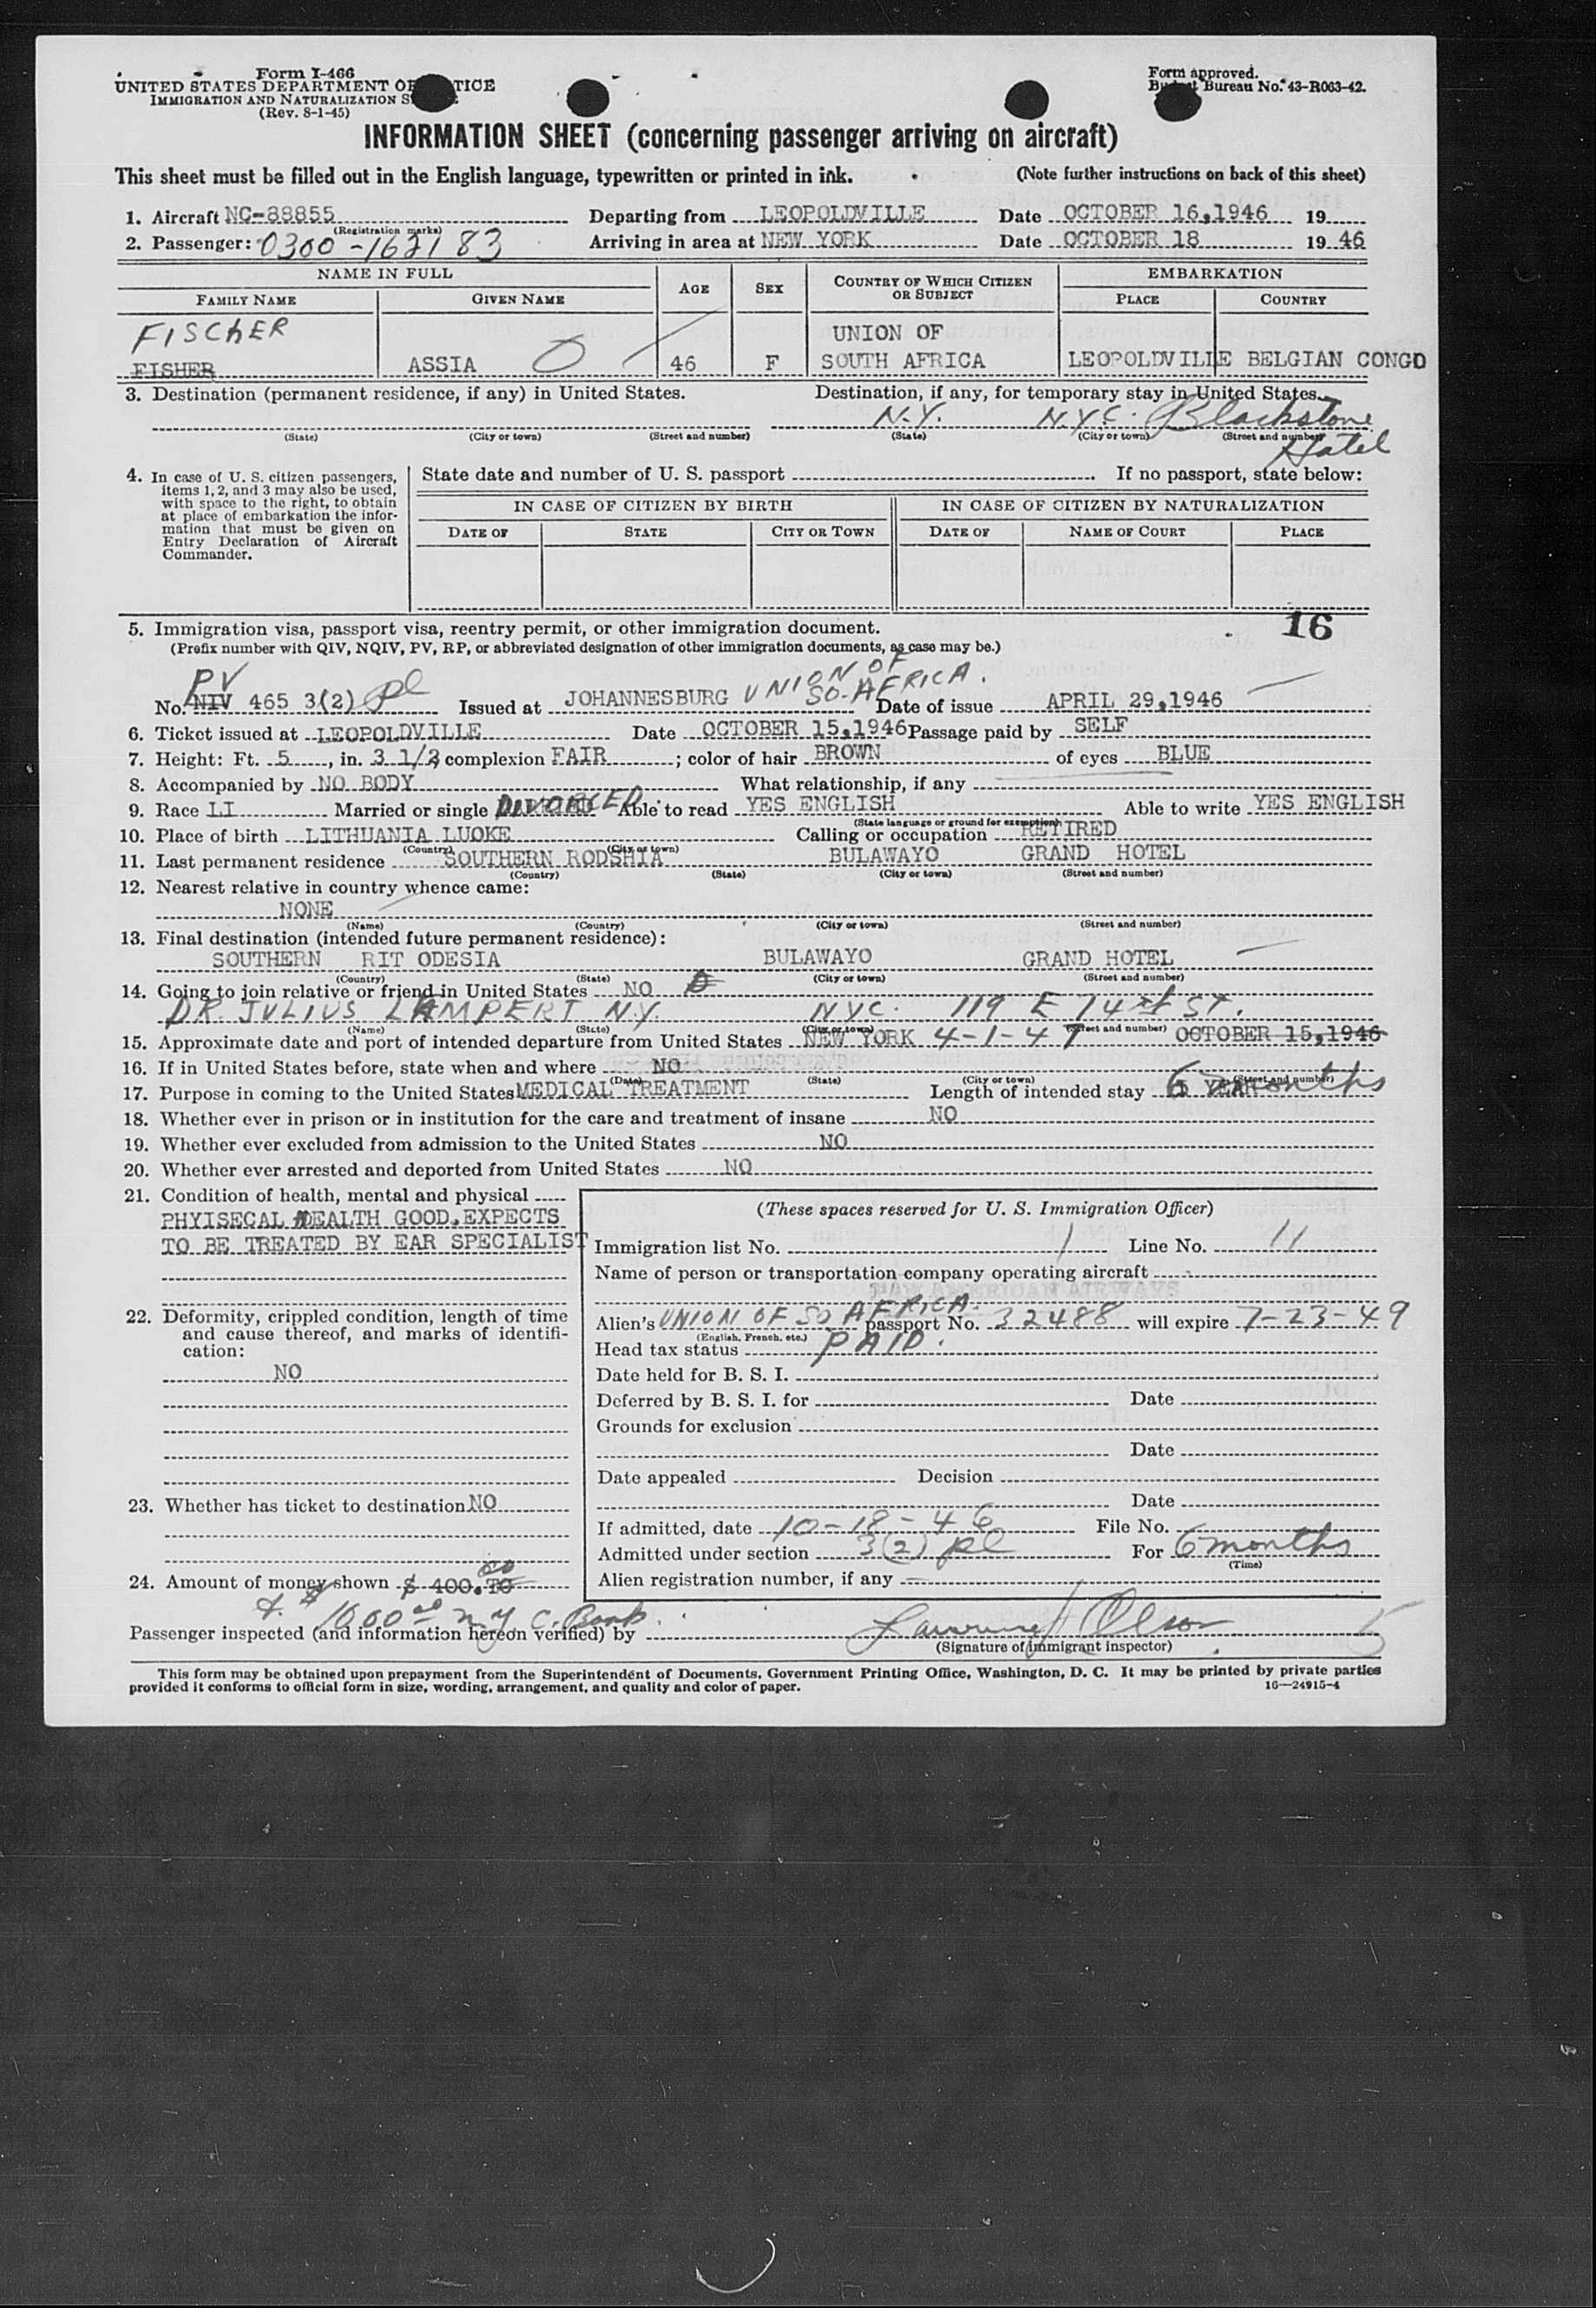 Form I-466
UNITED STATES DEPARTMENT OF JUSTICE
IMMIGRATION AND NATURALIZATION S
(Rev. 8-1-45)
Form approved.
Budget Bureau No. 43-R063-42.
INFORMATION SHEET (concerning passenger arriving on aircraft)
This sheet must be filled out in the English language, typewritten or printed in ink. (Note further instructions on back of this sheet)
1. Aircraft NC-88855 Departing from LEOPOLDVILLE Date OCTOBER 16,1946 19
(Registration marks)
2. Passenger: 0300-162183 Arriving in area at NEW YORK Date OCTOBER 18 1946
NAME IN FULL AGE SEX COUNTRY OF WHICH CITIZEN OR SUBJECT EMBARKATION
FAMILY NAME GIVEN NAME PLACE COUNTRY
FISCHER UNION OF
FISHER ASSIA O 46 F SOUTH AFRICA LEOPOLDVILLE BELGIAN CONGO
3. Destination (permanent residence, if any) in United States. Destination, if any, for temporary stay in United States.
N.Y. N.Y.C. Blackstone Hotel
(State) (City or town) (Street and number) (State) (City or town) (Street and number)
4. In case of U. S. citizen passengers, items 1, 2, and 3 may also be used, with space to the right, to obtain at place of embarkation the information that must be given on Entry Declaration of Aircraft Commander.
State date and number of U. S. passport If no passport, state below:
IN CASE OF CITIZEN BY BIRTH IN CASE OF CITIZEN BY NATURALIZATION
DATE OF STATE CITY OR TOWN DATE OF NAME OF COURT PLACE
16
5. Immigration visa, passport visa, reentry permit, or other immigration document.
(Prefix number with QIV, NQIV, PV, RP, or abbreviated designation of other immigration documents, as case may be.)
PV UNION OF
No. NIV 465 3(2) pl Issued at JOHANNESBURG SO-AFRICA. Date of issue APRIL 29,1946
6. Ticket issued at LEOPOLDVILLE Date OCTOBER 15,1946 Passage paid by SELF
7. Height: Ft. 5, in. 3 1/2, complexion FAIR; color of hair BROWN of eyes BLUE
8. Accompanied by NO BODY What relationship, if any
9. Race LI Married or single DIVORCED Able to read YES ENGLISH Able to write YES ENGLISH
(State language or ground for exemption)
10. Place of birth LITHUANIA LUOKE Calling or occupation RETIRED
(Country) (City or town)
11. Last permanent residence SOUTHERN RODSHIA BULAWAYO GRAND HOTEL
(Country) (State) (City or town) (Street and number)
12. Nearest relative in country whence came:
NONE
(Name) (Country) (City or town) (Street and number)
13. Final destination (intended future permanent residence):
SOUTHERN RIT ODESIA BULAWAYO GRAND HOTEL
(Country) (State) (City or town) (Street and number)
14. Going to join relative or friend in United States NO
DR. JULIUS LAMPERT N.Y. NYC. 119 E 74th ST.
(Name) (State) (City or town) (Street and number)
15. Approximate date and port of intended departure from United States NEW YORK 4-1-47 OCTOBER 15,1946
16. If in United States before, state when and where NO
(Date) (State) (City or town) (Street and number)
17. Purpose in coming to the United States MEDICAL TREATMENT Length of intended stay 6 months YEAR
18. Whether ever in prison or in institution for the care and treatment of insane NO
19. Whether ever excluded from admission to the United States NO
20. Whether ever arrested and deported from United States NO
21. Condition of health, mental and physical
PHYISECAL HEALTH GOOD.EXPECTS
TO BE TREATED BY EAR SPECIALIST
22. Deformity, crippled condition, length of time and cause thereof, and marks of identification:
NO
23. Whether has ticket to destination NO
24. Amount of money shown $ 400.00
& $1000 N.Y.C. Bank
(These spaces reserved for U. S. Immigration Officer)
Immigration list No. 1 Line No. 11
Name of person or transportation company operating aircraft
Alien's UNION OF SO AFRICA. passport No. 32488 will expire 7-23-49
(English, French, etc.)
Head tax status PAID.
Date held for B. S. I.
Deferred by B. S. I. for Date
Grounds for exclusion
Date
Date appealed Decision
Date
If admitted, date 10-18-46 File No.
Admitted under section 3(2) pl For 6 months
(Time)
Alien registration number, if any
Passenger inspected (and information hereon verified) by Olson 5
(Signature of immigrant inspector)
This form may be obtained upon prepayment from the Superintendent of Documents, Government Printing Office, Washington, D. C. It may be printed by private parties
provided it conforms to official form in size, wording, arrangement, and quality and color of paper. 16—24915-4